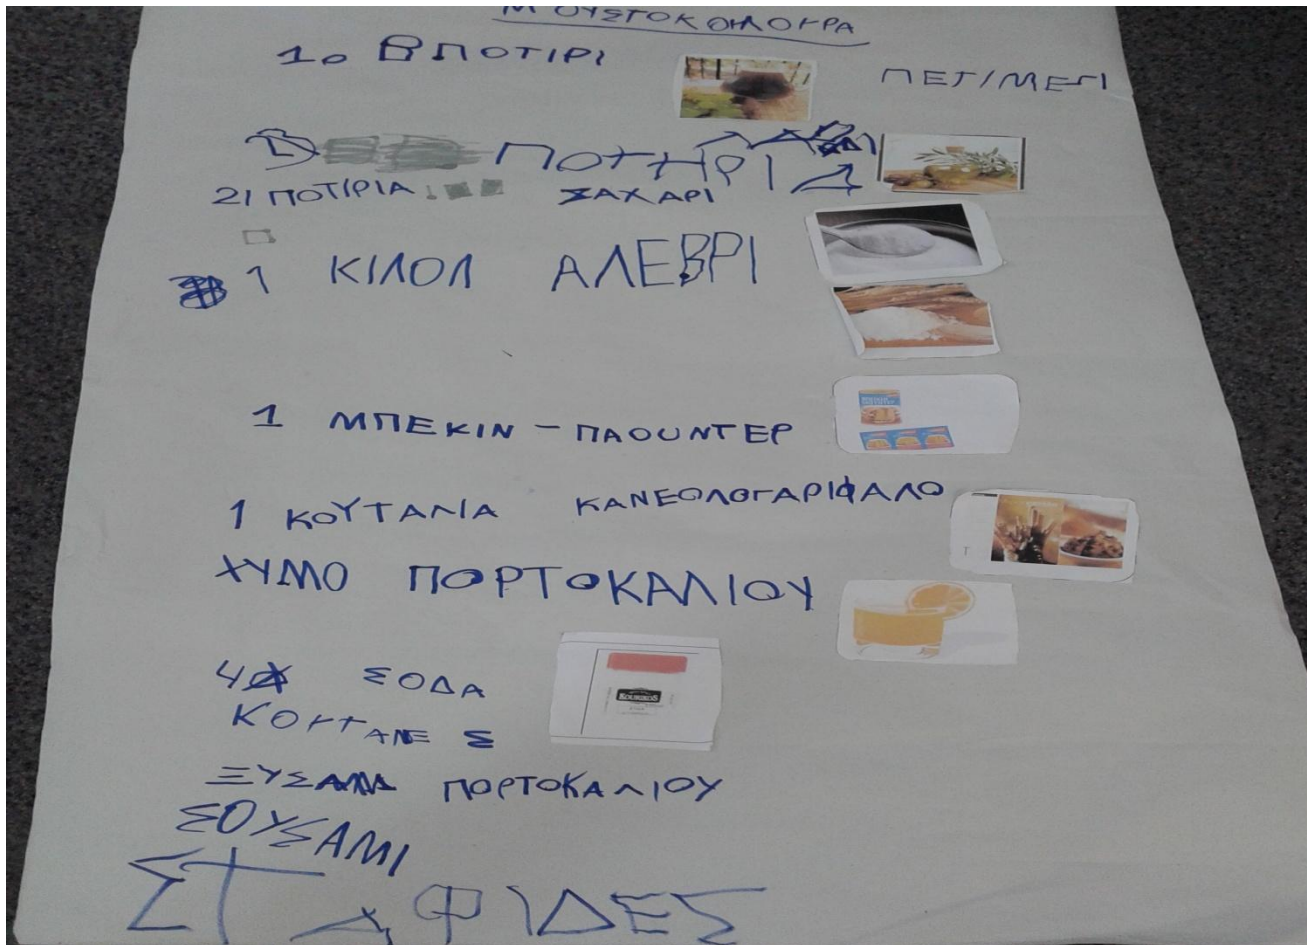 ΜΟΥΣΤΟΚΟΥΛΟΥΡΑ
1ο ΠΟΤΙΡΙ ΠΕΤΙΜΕΖΙ
ΠΟΤΗΡΙΑ ΛΑΔΙ
21 ΠΟΤΙΡΙΑ ΖΑΧΑΡΙ
1 ΚΙΛΟΛ ΑΛΕΒΡΙ
1 ΜΠΕΚΙΝ - ΠΑΟΥΝΤΕΡ
1 ΚΟΥΤΑΛΙΑ ΚΑΝΕΟΛΟΓΑΡΙΦΑΛΟ
ΧΥΜΟ ΠΟΡΤΟΚΑΛΙΟΥ
4 ΣΟΔΑ
ΚΟΥΤΑΛΙΕΣ
ΞΥΣΑΜΑ ΠΟΡΤΟΚΑΛΙΟΥ
ΣΟΥΣΑΜΙ
ΣΤΑΦΙΔΕΣ